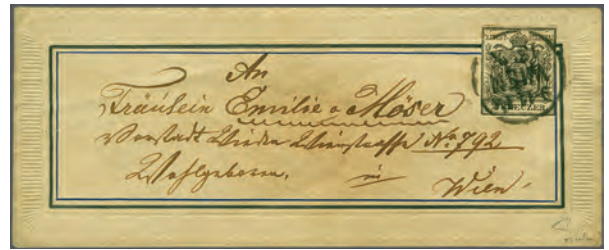 An
Fräulein Emilie v Möser
Vorstadt Wieden Wienstrasse No. 792
Wohlgeboren.
in
Wien.
KREUZER